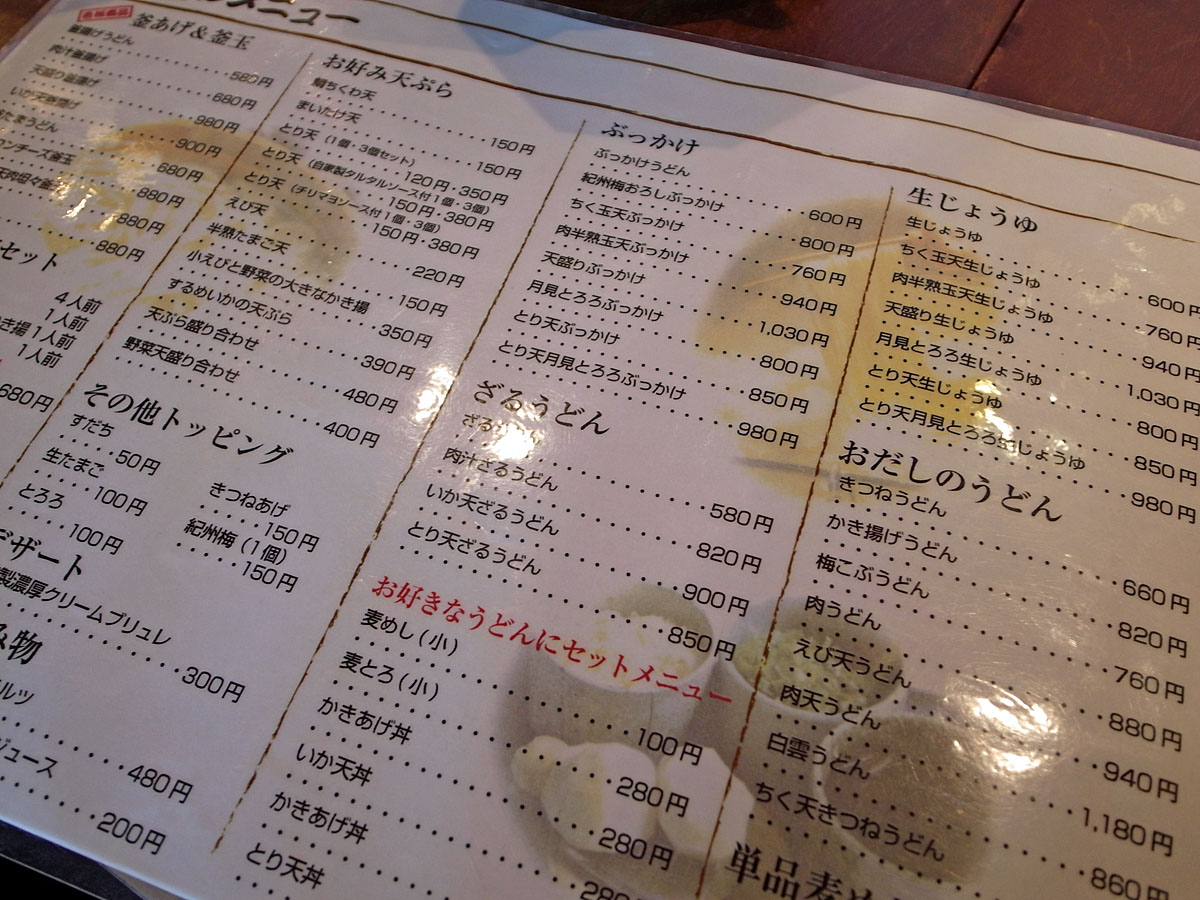 メニュー
釜あげ&釜玉
釜揚げうどん 580円
肉汁釜揚げ 680円
天盛り釜揚げ 980円
いか天釜揚げ 900円
たまうどん 680円
チーズ釜玉 880円
880円
880円
セット
4人前
1人前
き揚1人前
1人前
680円
お好み天ぷら
鯛ちくわ天 150円
まいたけ天 150円
とり天(1個・3個セット) 120円・350円
とり天(自家製タルタルソース付1個・3個) 150円・380円
とり天(チリマヨソース付1個・3個) 150円・380円
えび天 220円
半熟たまご天 150円
小えびと野菜の大きなかき揚 350円
するめいかの天ぷら 390円
天ぷら盛り合わせ 480円
野菜天盛り合わせ 400円
その他トッピング
すだち 50円
生たまご 100円
とろろ 100円
きつねあげ 150円
紀州梅(1個) 150円
デザート
製濃厚クリームブリュレ 300円
み物
ルツ 480円
ジュース 200円
ぶっかけ
ぶっかけうどん 600円
紀州梅おろしぶっかけ 800円
ちく玉天ぶっかけ 760円
肉半熟玉天ぶっかけ 940円
天盛りぶっかけ 1,030円
月見とろろぶっかけ 800円
とり天ぶっかけ 850円
とり天月見とろろぶっかけ 980円
ざるうどん
ざる 580円
肉汁ざるうどん 820円
いか天ざるうどん 900円
とり天ざるうどん 850円
お好きなうどんにセットメニュー
麦めし(小) 100円
麦とろ(小) 280円
かきあげ丼 280円
いか天丼 280
かきあげ丼
とり天丼
生じょうゆ
生じょうゆ 600円
ちく玉天生じょうゆ 760円
肉半熟玉天生じょうゆ 940円
天盛り生じょうゆ 1,030円
月見とろろ生じょうゆ 800円
とり天生じょうゆ 850円
とり天月見とろろ生じょうゆ 980円
おだしのうどん
きつねうどん 660円
かき揚げうどん 820円
梅こぶうどん 760円
肉うどん 880円
えび天うどん 940円
肉天うどん 1,180円
白雲うどん 860円
ちく天きつねうどん
単品麦め